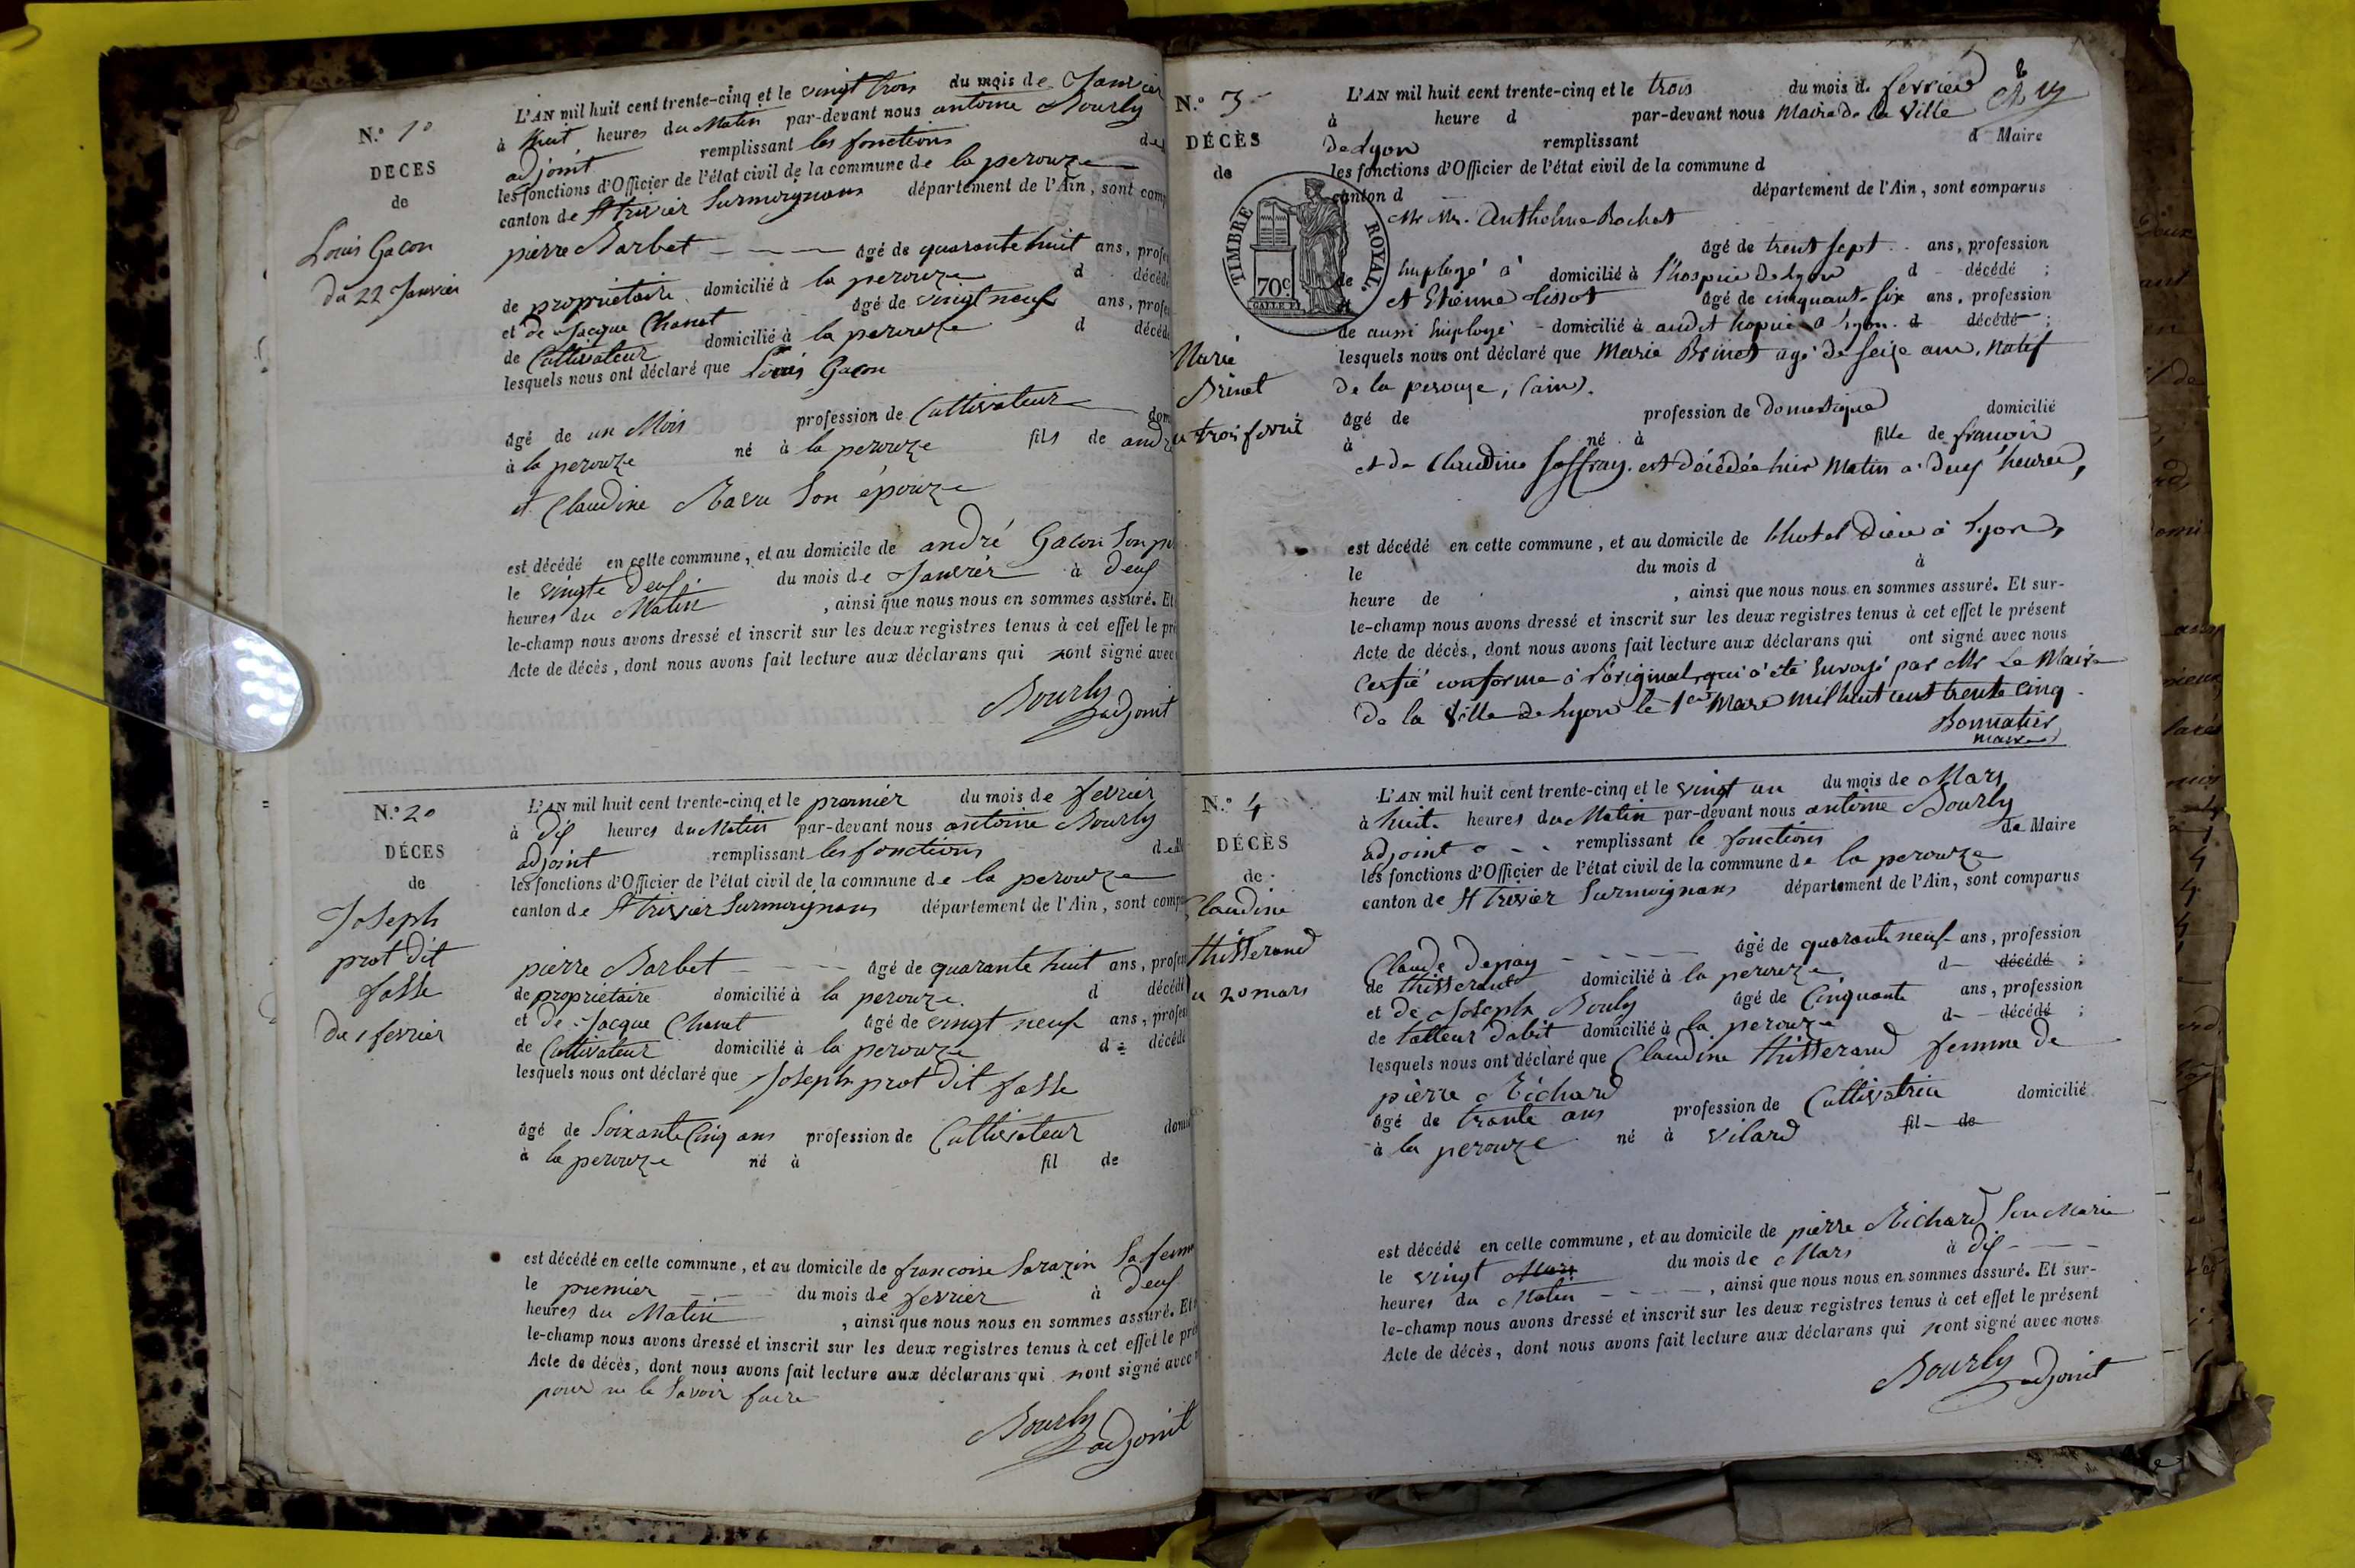 N.° 1°
DÉCES
de
Louis Gacon
du 22 Janvier
L'AN mil huit cent trente-cinq et le vingt trois du mois de Janvier
à huit heures du Matin par-devant nous antoine Bourly
adjoint remplissant les fonctions de
les fonctions d'Officier de l'état civil de la commune de la perouze
canton de St trivier Surmoignans département de l'Ain, sont comp
pierre Barbet âgé de quarante huit ans, profe
de propriétaire domicilié à la perouze d décédé
et de Jacque Chanet âgé de vingt neuf ans, profe
de Cultivateur domicilié à la perouze d décédé
lesquels nous ont déclaré que Louis Gacon
âgé de un Mois profession de Cultivateur dom
à la perouze né à la perouze fils de andré
et Claudine Ravu Son épouze
est décédé en cette commune, et au domicile de andré Gacon Son pè
le vingte deuf du mois de Janvier à deuf
heures du Matin , ainsi que nous nous en sommes assuré. Et
le-champ nous avons dressé et inscrit sur les deux registres tenus à cet effet le pré
Acte de décès, dont nous avons fait lecture aux déclarans qui nont signé avec
Bourly
adjoint
N.° 2°
DÉCES
de
Joseph
prot dit
fasse
du 1 fevrier
L'AN mil huit cent trente-cinq et le premier du mois de fevrier
à dif heures du Matin par-devant nous antoine Bourly
adjoint remplissant les fonctions de
les fonctions d'Officier de l'état civil de la commune de la perouze
canton de St trivier Surmoignans département de l'Ain, sont comp
pierre Barbet âgé de quarante huit ans, profes
de propriétaire domicilié à la perouze d décédé
et de Jacque Chanet âgé de vingt neuf ans, profes
de Cultivateur domicilié à la perouze d décédé
lesquels nous ont déclaré que Joseph prot dit fasse
âgé de Soixante Cinq ans profession de Cultivateur domi
à la perouze né à fil de
est décédé en cette commune, et au domicile de francoise Sarazin Sa femm
le premier du mois de fevrier à deuf
heures du Matin , ainsi que nous nous en sommes assuré. Et
le-champ nous avons dressé et inscrit sur les deux registres tenus à cet effet le pré
Acte de décès, dont nous avons fait lecture aux déclarans qui nont signé avec
pour ne le Savoir faire
Bourly
adjoint
N.° 3
DÉCÈS
de
Marie
Brinet
trois fevrié
L'AN mil huit cent trente-cinq et le trois du mois de fevrier
à heure d par-devant nous Maire de la Ville
de Lyon remplissant d Maire
les fonctions d'Officier de l'état civil de la commune d
canton d département de l'Ain, sont comparus
TIMBRE ROYAL.
70c
Mr Mr. Anthelme Rochet
âgé de trent sept ans, profession
de Employé à domicilié à l'hospice de lyon d décédé ;
et Etienne tissot âgé de cinquant-six ans, profession
de aussi Employé domicilié à audit hopice à Lyon. d décédé ;
lesquels nous ont déclaré que Marie Brinet agé de seize ans, natif
De la perouze, (ain).
âgé de profession de Domestique domicilié
à né à fille de francois
et de Claudine Joffray. est décédée hier Matin à deuf heures,
est décédé en cette commune, et au domicile de l'hotel Dieu à Lyon,
le du mois d à
heure de , ainsi que nous nous en sommes assuré. Et sur-
le-champ nous avons dressé et inscrit sur les deux registres tenus à cet effet le présent
Acte de décès, dont nous avons fait lecture aux déclarans qui ont signé avec nous
Certié conforme à l'original, qui à été Envoyé par Mr Le Maire
De la Ville de Lyon le 1er Mars mil huit cent trente cinq
Bonnatier
maire
N.° 4
DÉCÈS
de
Claudine
thisserand
20 mars
L'AN mil huit cent trente-cinq et le vingt un du mois de Mars
à huit heures du Matin par-devant nous antoine Bourly
adjoint remplissant le fonctions de Maire
les fonctions d'Officier de l'état civil de la commune de la perouze
canton de St trivier Surmoignans département de l'Ain, sont comparus
Claude âgé de quarante neuf ans, profession
de thisserand domicilié à la perouze d décédé ;
et de Joseph Bouly âgé de Cinquante ans, profession
de talleur dabit domicilié à la perouze d décédé ;
lesquels nous ont déclaré que Claudine thisserand femme de
pierre Richard
âgé de trante ans profession de Cultivatrice domicilié
à la perouze né à vilard fil de
est décédé en cette commune, et au domicile de pierre Richard Son Marie
le vingt Mars du mois de Mars à dif
heures du Matin , ainsi que nous nous en sommes assuré. Et sur-
le-champ nous avons dressé et inscrit sur les deux registres tenus à cet effet le présent
Acte de décès, dont nous avons fait lecture aux déclarans qui nont signé avec nous
Bourly
adjoint